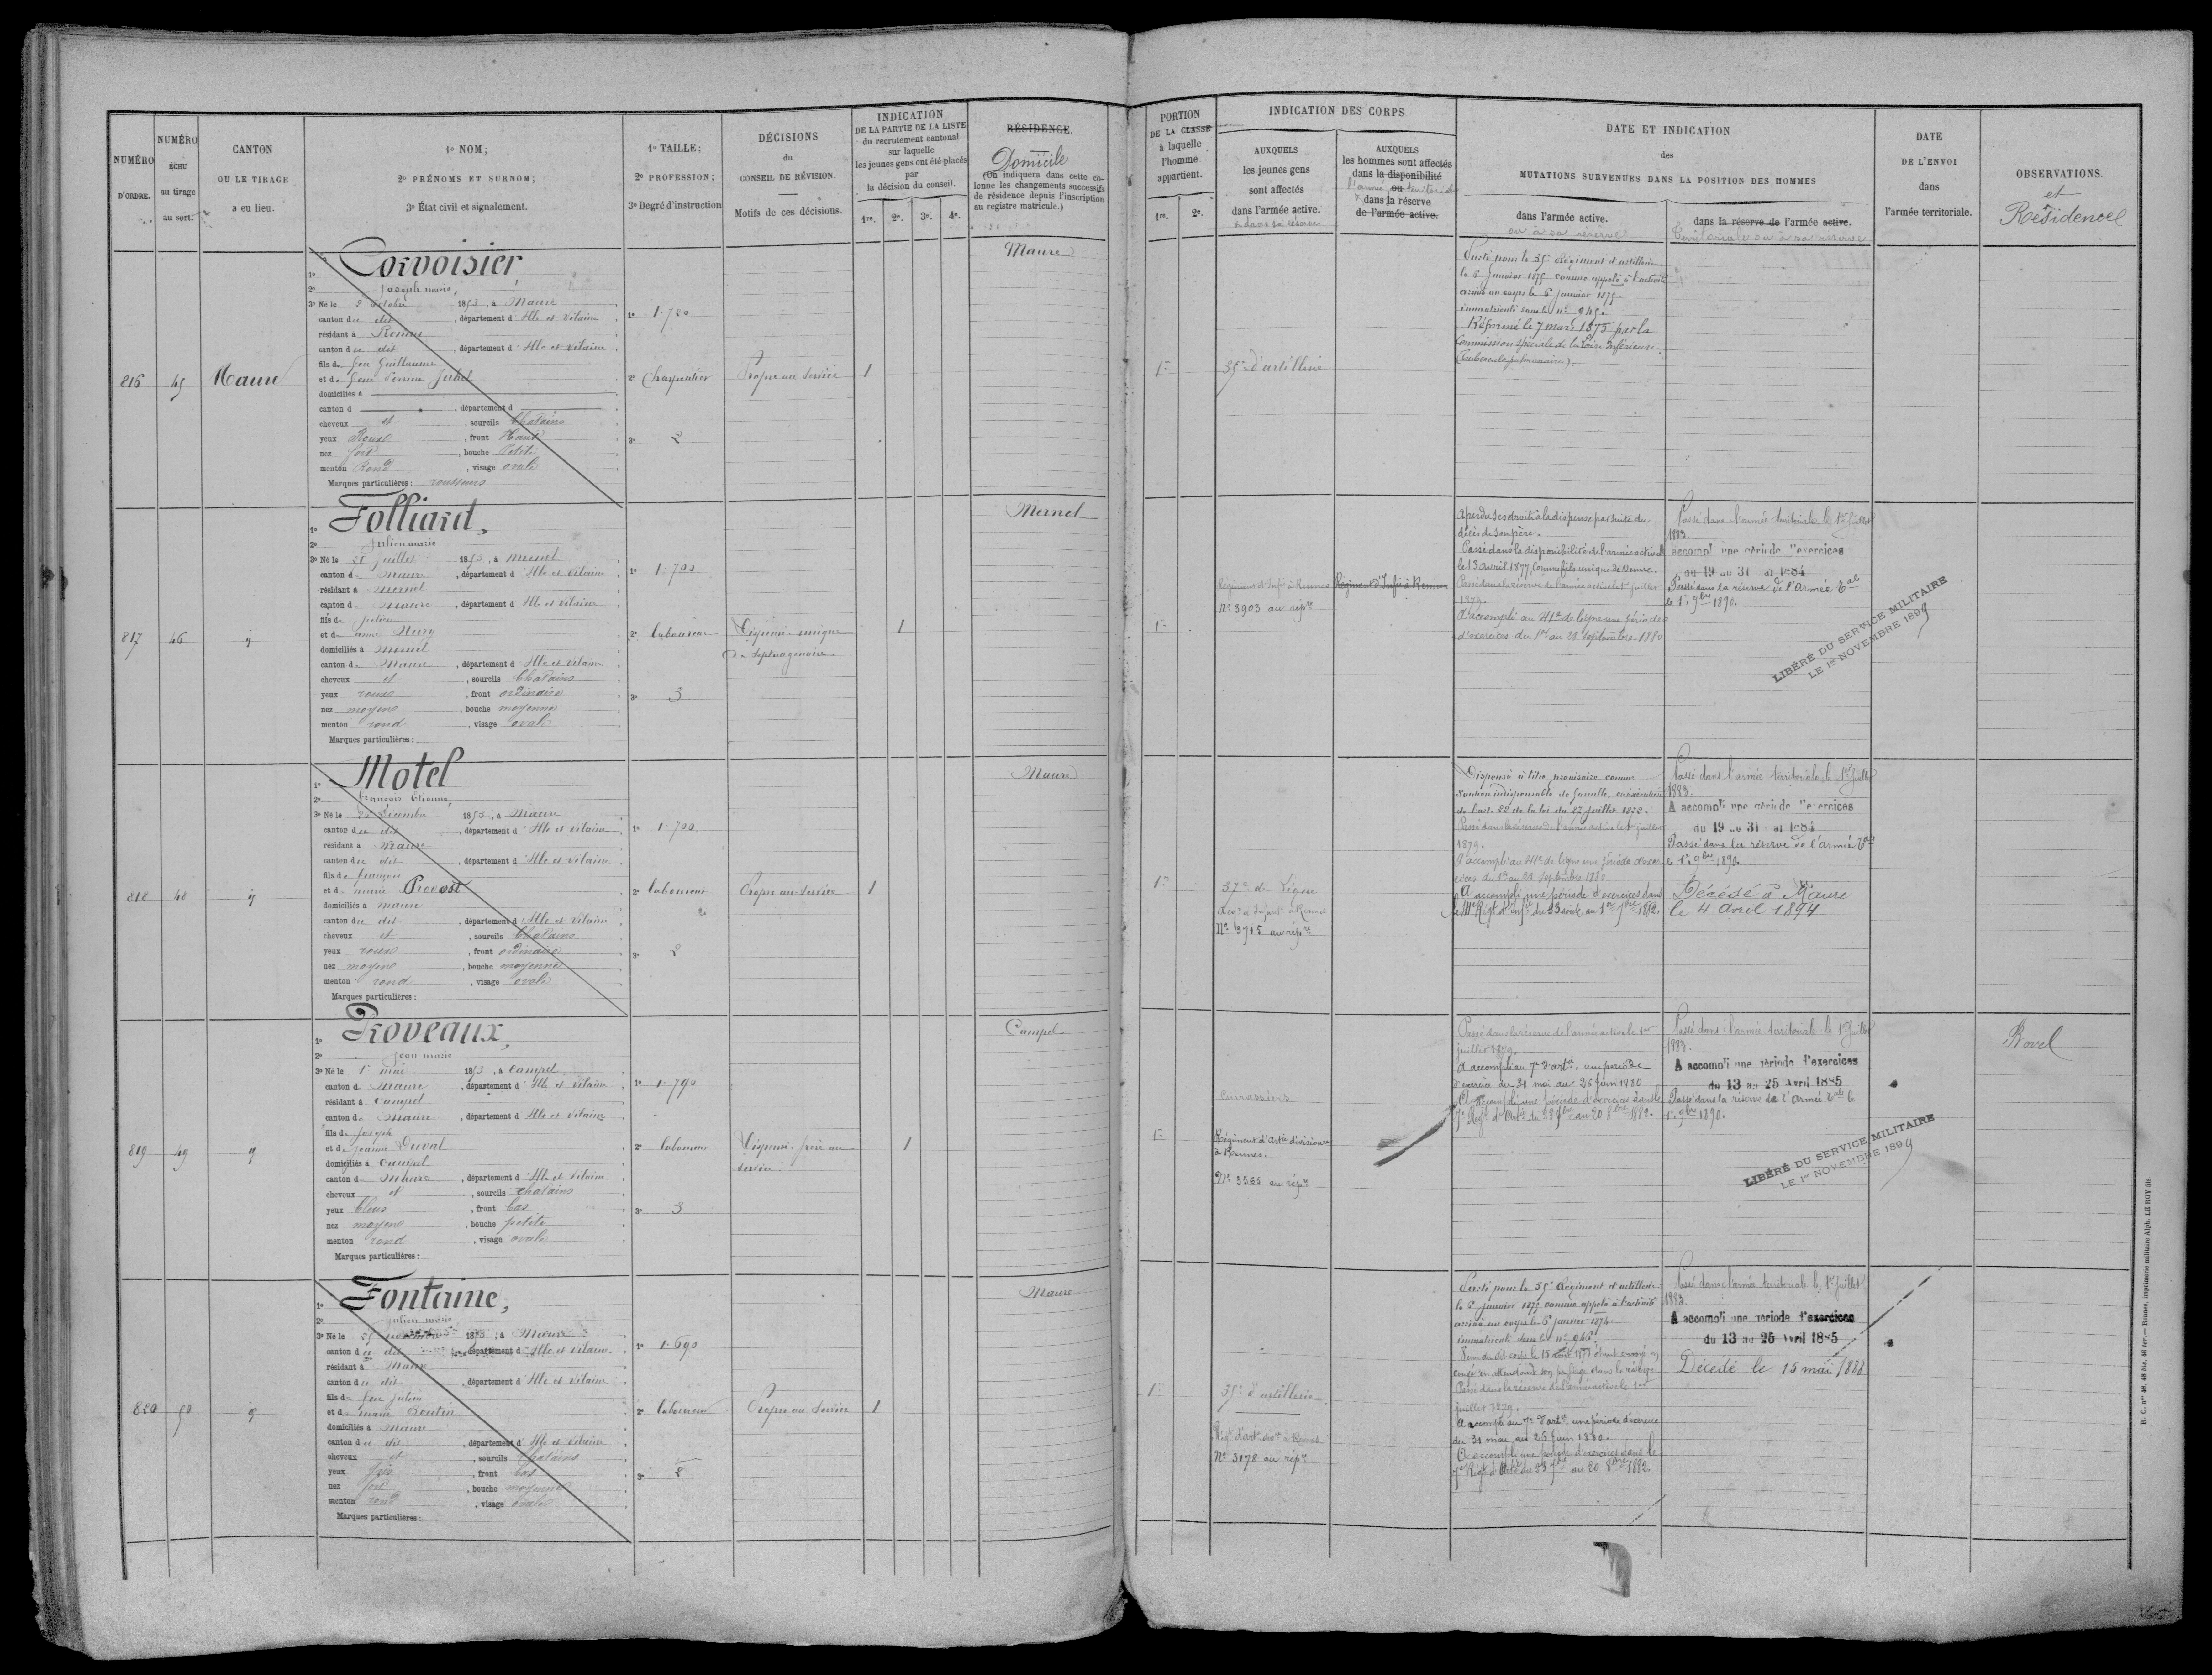 NUMÉRO
D'ORDRE.
NUMÉRO
ÉCHU
au tirage
au sort.
CANTON
OU LE TIRAGE
a eu lieu.
1° NOM;
2° PRÉNOMS ET SURNOM;
3° État civil et signalement.
1° TAILLE;
2° PROFESSION;
3° Degré d'instruction
DÉCISIONS
du
CONSEIL DE RÉVISION.
Motifs de ces décisions.
INDICATION
DE LA PARTIE DE LA LISTE
du recrutement cantonal
sur laquelle
les jeunes gens ont été placés
par
la décision du conseil.
1re. 2e. 3e. 4e.
RÉSIDENCE.
Domicile
(On indiquera dans cette co-
lonne les changements successifs
de résidence depuis l'inscription
au registre matricule.)
816
45
Maure
1° Corvoisier
2° Joseph marie,
3° Né le 2 octobre 1853, à Maure
canton du dit, département d'Ille et Vilaine
résidant à Rennes
canton du dit, département d'Ille et Vilaine
fils de feu Guillaume
et de feue Perrine Juhel
domiciliés à
canton d , département d
cheveux et , sourcils Chatains
yeux Roux , front Haut
nez fort , bouche Petite
menton Rond , visage ovale
Marques particulières : rousseurs
1° 1.720
2° Charpentier
3° 2
Propre au service
1
Maure
817
46
1° Folliard,
2° Julien marie
3° Né le 25 juillet 1853, à Mernel
canton de Maure, département d'Ille et Vilaine
résidant à Mernel
canton de Maure, département d'Ille et Vilaine
fils de Julien
et de anne
domiciliés à Mernel
canton de Maure, département d'Ille et Vilaine
cheveux et , sourcils Chatains
yeux roux , front ordinaire
nez moyen , bouche moyenne
menton rond , visage ovale
Marques particulières :
1° 1.700
2° laboureur
3° 3
Dispensé. unique
de septuagénaire.
1
Mernel
818
48
1° Motel
2° François Etienne,
3° Né le 25 Décembre 1853, à Maure
canton du dit, département d'Ille et Vilaine
résidant à Maure
canton du dit, département d'Ille et Vilaine
fils de françois
et de marie Provost
domiciliés à maure
canton du dit, département d'Ille et Vilaine
cheveux et , sourcils Chatains
yeux roux , front ordinaire
nez moyen , bouche moyenne
menton rond , visage ovale
Marques particulières :
1° 1.700
2° laboureur
3° 2
Propre au service
1
Maure
819
49
1° Proveaux,
2° Jean marie
3° Né le 1er mai 1853, à Campel
canton de Maure, département d'Ille et Vilaine
résidant à Campel
canton de Maure, département d'Ille et Vilaine
fils de Joseph
et de Jeanne Duval
domiciliés à Campel
canton de Maure, département d'Ille et Vilaine
cheveux et , sourcils chatains
yeux bleus , front bas
nez moyen , bouche petite
menton rond , visage ovale
Marques particulières :
1° 1.790
2° laboureur
3° 3
Dispensé. frère au
service
1
Campel
820
50
1° Fontaine,
2° Julien marie
3° Né le 25 1853, à Maure
canton du dit, département d'Ille et Vilaine
résidant à Maure
canton du dit, département d'Ille et Vilaine
fils de feu Julien
et de marie Boutin
domiciliés à Maure
canton du dit, département d'Ille et Vilaine
cheveux et , sourcils Chatains
yeux gris , front bas
nez fort , bouche moyenne
menton rond , visage ovale
Marques particulières :
1° 1.690
2° laboureur
3° 2
Propre au service
1
Maure
PORTION
DE LA CLASSE
à laquelle
l'homme
appartient.
1re. 2e.
INDICATION DES CORPS
AUXQUELS
les jeunes gens
sont affectés
dans l'armée active.
et dans sa réserve
AUXQUELS
les hommes sont affectés
dans la disponibilité
l'armée ou territoriale
dans la réserve
de l'armée active.
DATE ET INDICATION
des
MUTATIONS SURVENUES DANS LA POSITION DES HOMMES
dans l'armée active.
ou à sa réserve
dans la réserve de l'armée active.
Territoriale ou à sa réserve
DATE
DE L'ENVOI
dans
l'armée territoriale.
OBSERVATIONS.
et
Résidence
1re
35e d'artillerie
Parti pour le 35e Régiment d'artillerie
le 6 Janvier 1875 comme appelé à l'activité
arrivé au corps le 6 Janvier 1875.
immatriculé sous le n° 945.
Réformé le 7 mars 1875 par la
Commission spéciale de la Loire Inférieure.
(Tubercule pulmonaire)
1re
Régiment d'Infie à Rennes
N° 3903 au répre
Régiment d'Infie à Rennes
A perdu ses droits à la dispense par suite du
décès de son père.
Passé dans la disponibilité de l'armée active
le 13 avril 1877, Comme fils unique de Veuve.
Passé dans la réserve de l'armée active le 1er juillet
1879.
A accompli au 41e de ligne une période
d'exercices du 1er au 28 septembre 1880
Passé dans l'armée territoriale le 1er Juillet
1883.
accompli une période d'exercices
du 19 au 31 1884
Passé dans la réserve de l'Armée Tale
le 1er 9bre 1890.
LIBÉRÉ DU SERVICE MILITAIRE
LE 1er NOVEMBRE 1899
1re
37e de Ligne
Régt d'Infant. à Rennes
N° 3715 au répre
Dispensé à titre provisoire comme
soutien indispensable de famille en exécution
de l'art. 22 de la loi du 27 juillet 1872.
Passé dans la réserve de l'armée active le 1er juillet
1879.
A accompli au 41e de ligne une période d'exer-
cices du 1er au 28 septembre 1880
A accompli une période d'exercices dans
le 41e Régt d'Infie du 23 août au 1er 7bre 1882.
Passé dans l'armée territoriale le 1er Juillet
1883.
A accompli une période d'exercices
du 19 au 31 1884
Passé dans la réserve de l'armée Tale
le 1er 9bre 1890.
Décédé à Maure
le 4 Avril 1894
1re
Cuirassiers
Régiment d'Artie divisionre
à Rennes.
N° 3565 au répre
Passé dans la réserve de l'armée active le 1er
juillet 1879.
A accompli au 7e d'artie. une période
d'exercice du 31 mai au 26 juin 1880
A accompli une période d'exercices dans le
7e Régt d'Artie du 23 7bre au 20 8bre 1882.
Passé dans l'armée territoriale le 1er Juillet
1883.
A accompli une période d'exercices
du 13 au 25 Avril 1885
Passé dans la réserve de l'Armée Tale le
1er 9bre 1890.
LIBÉRÉ DU SERVICE MILITAIRE
LE 1er NOVEMBRE 1899
Bovel
1re
35e d'artillerie
Régt d'art. divre à Rennes
N° 3178 au répre
Parti pour le 35e Régiment d'artillerie
le 6 janvier 1875 comme appelé à l'activité
arrivé au corps le 6 janvier 1875.
immatriculé sous le n° 946.
Venu du dit corps le 15 août 1877 étant envoyé en
congé en attendant son passage dans la réserve
Passé dans la réserve de l'armée active le 1er
juillet 1879.
A accompli au 7e d'artie une période d'exercice
du 31 mai au 26 Juin 1880.
A accompli une période d'exercices dans le
7e Régt d'Artie du 23 7bre au 20 8bre 1882
Passé dans l'armée territoriale le 1er Juillet
1883.
A accompli une période d'exercices
du 13 au 25 Avril 1885
Décédé le 15 mai 1888
R. C. nos 48, 48 bis, 48 ter. — Rennes, imprimerie militaire Alph. LE ROY fils
165